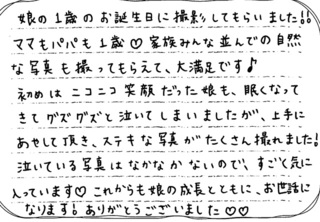 娘の1歳のお誕生日に撮影してもらいました!!
ママもパパも1歳♡家族みんな並んでの自然
な写真も撮ってもらえて、大満足です♪
初めはニコニコ笑顔だった娘も、眠くなって
きてグズグズと泣いてしまいましたが、上手に
あせして頂き、ステキな写真がたくさん撮れました!
泣いている写真はなかなかないので、すごく気に
入っています♡これからも娘の成長とともに、お世話に
なります!ありがとうございました♡♡